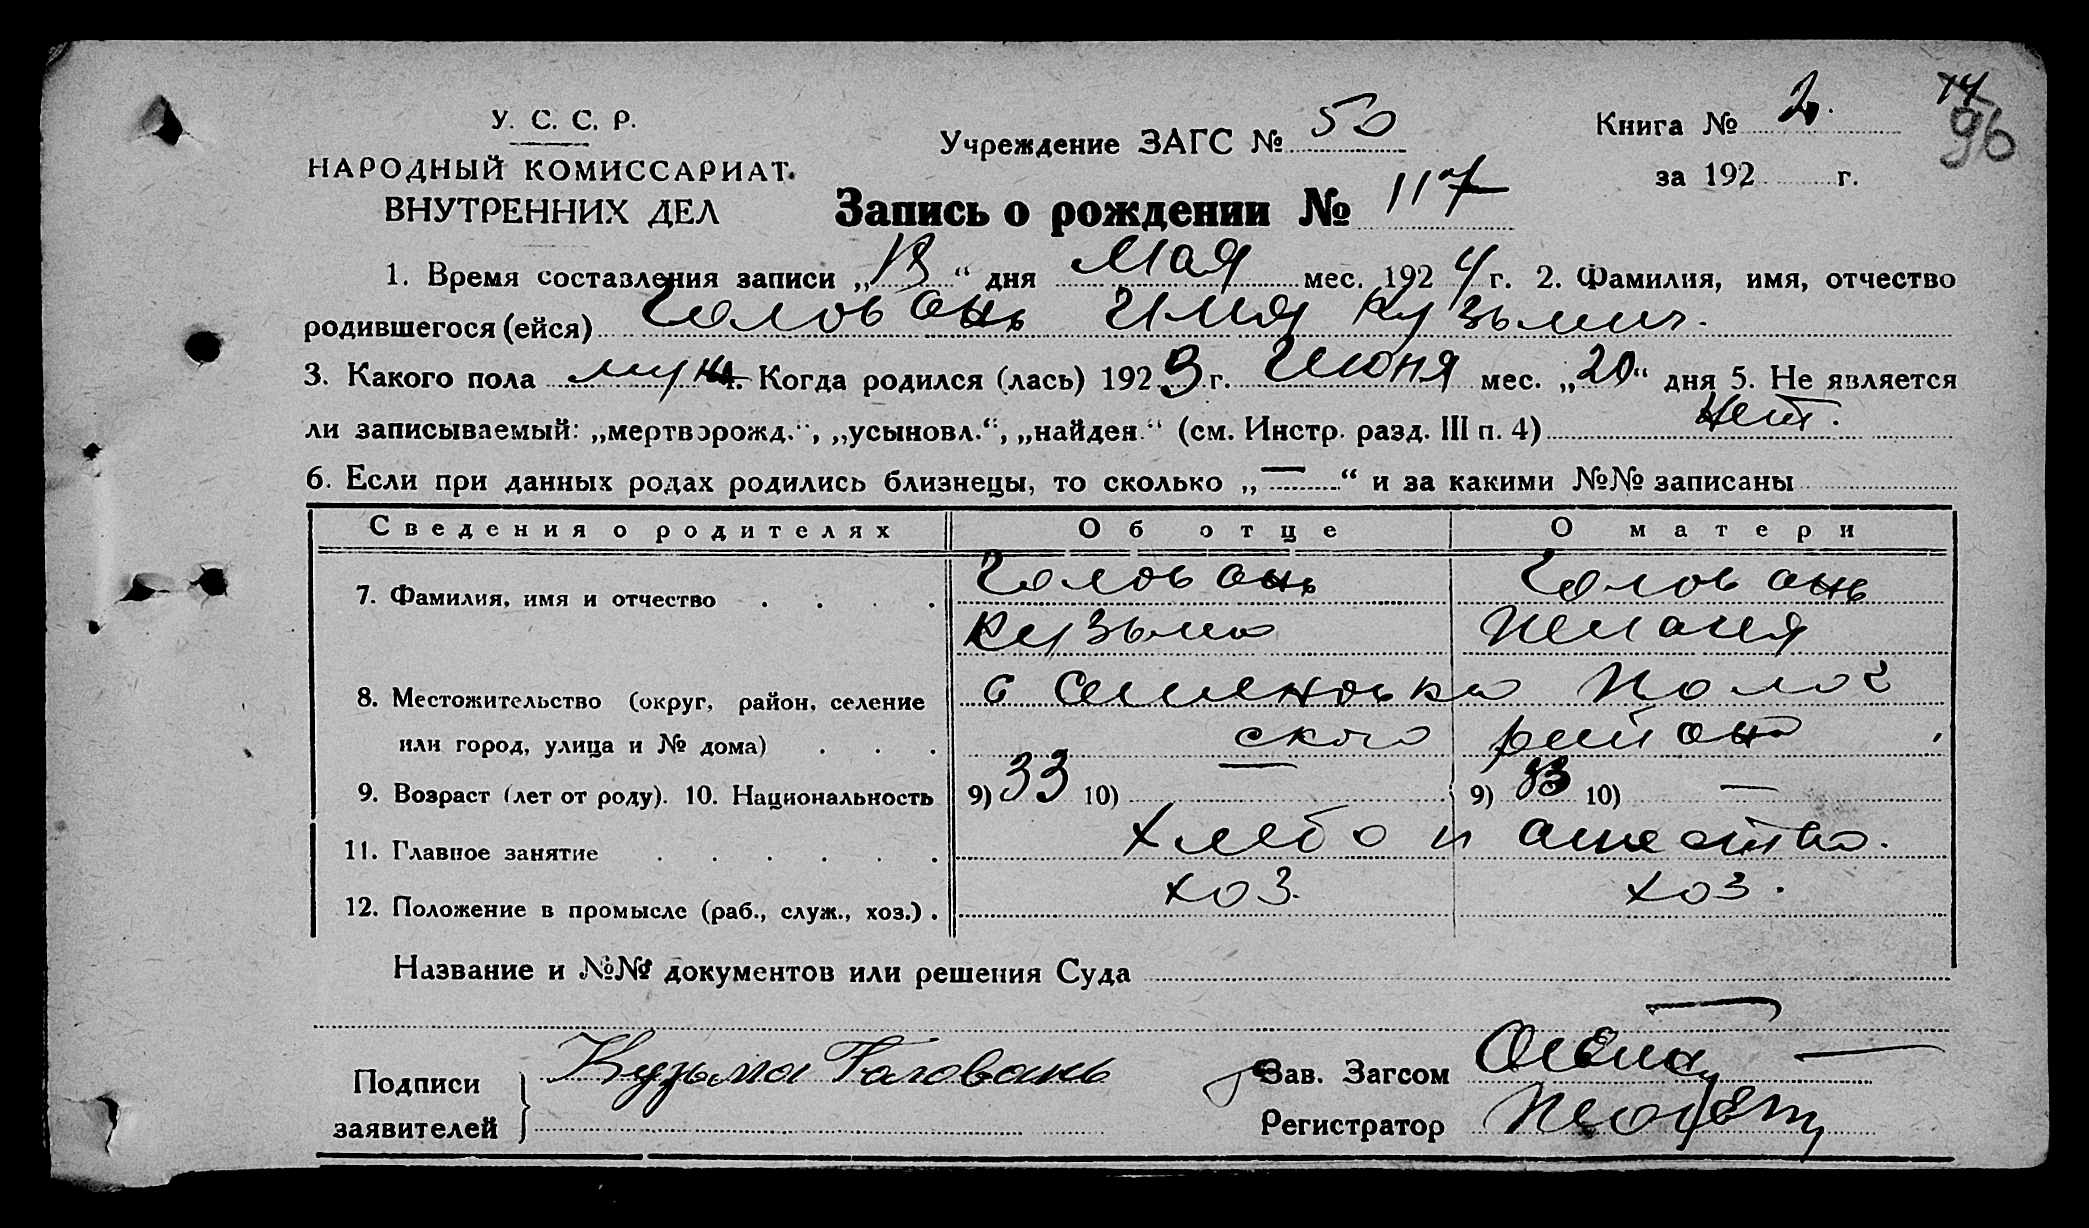 У. С. С. Р.
НАРОДНЫЙ КОМИССАРИАТ
ВНУТРЕННИХ ДЕЛ
Учреждение ЗАГС № 50
Книга № 2.
за 192 г.
14
96
Запись о рождении № 117
1. Время составления записи „ “ дня Мая мес. 1924 г. 2. Фамилия, имя, отчество
родившегося (ейся) Головань Илия Кузьмич.
3. Какого пола муж. 4. Когда родился (лась) 1923 г. Июня мес. „20“ дня 5. Не является
ли записываемый: „мертворожд.“, „усыновл.“, „найден.“ (см. Инстр. разд. III п. 4) нет.
6. Если при данных родах родились близнецы, то сколько „—“ и за какими №№ записаны
Сведения о родителях Об отце О матери
7. Фамилия, имя и отчество Головань Головань
Кузьма Пелагия
8. Местожительство (округ, район, селение с Семеновка Полог
или город, улица и № дома) ского района
9. Возраст (лет от роду). 10. Национальность 9) 33 10) — 9) 33 10) —
11. Главное занятие хлебопашество.
12. Положение в промысле (раб., служ., хоз.) хоз. хоз.
Название и №№ документов или решения Суда
Подписи
заявителей
Кузьма Головань
Зав. Загсом
Регистратор